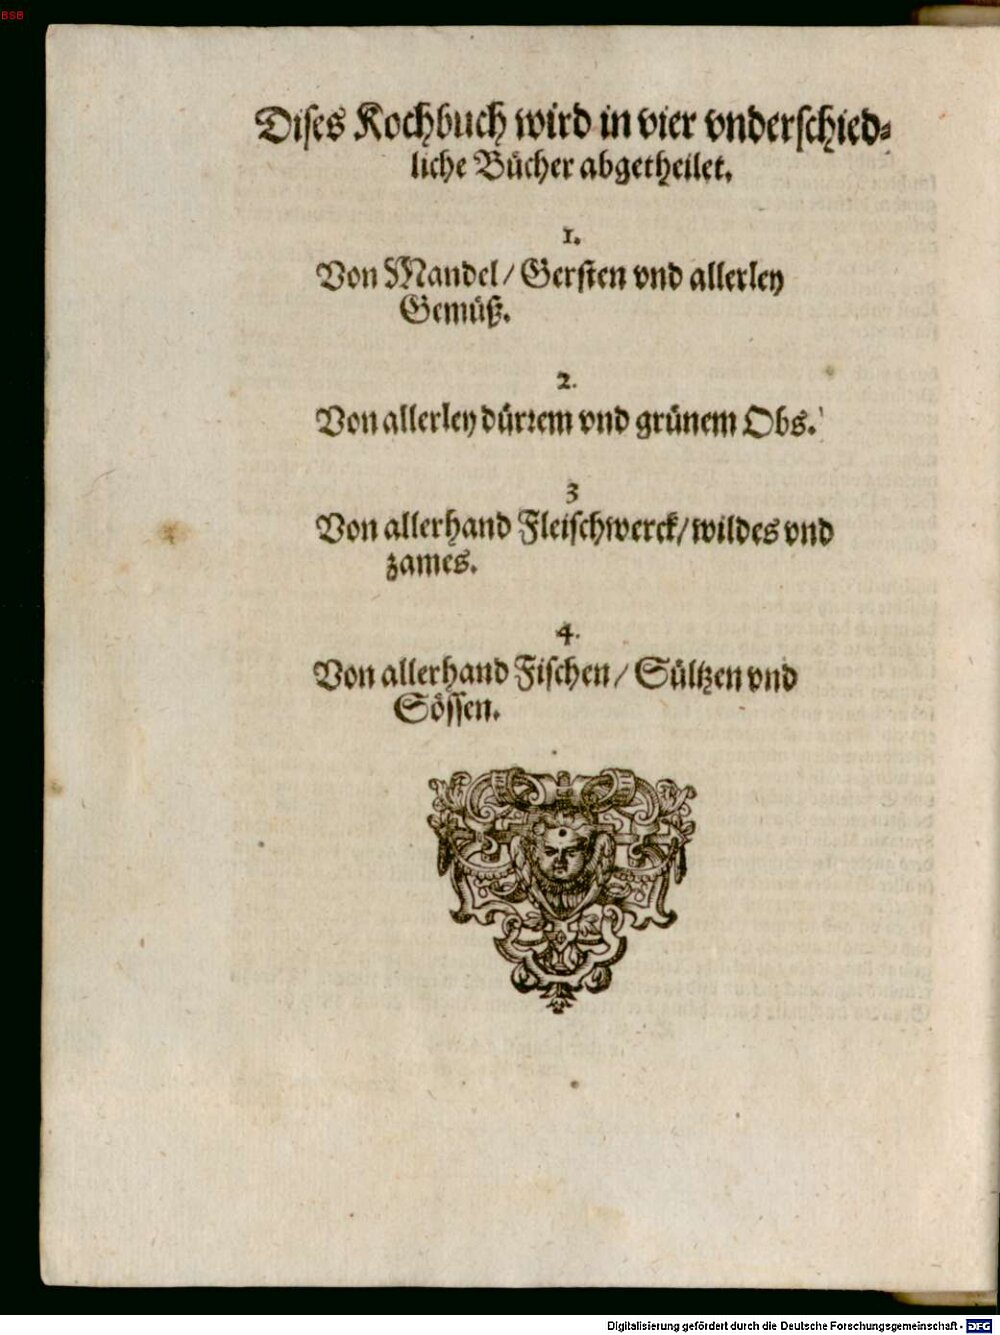 BSB
Dises Kochbuch wird in vier vnderschied=
liche Bücher abgetheilet.
1.
Von Mandel / Gersten vnd allerley
Gemüß.
2.
Von allerley dürrem vnd grünem Obs.
3
Von allerhand Fleischwerck / wildes vnd
zames.
4.
Von allerhand Fischen / Sültzen vnd
Sössen.
Digitalisierung gefördert durch die Deutsche Forschungsgemeinschaft - DFG